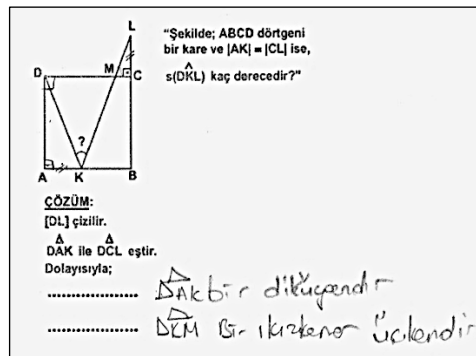 L
"Şekilde; ABCD dörtgeni
bir kare ve |AK| = |CL| ise,
s(DKL) kaç derecedir?"
D
M
C
?
A
K
B
ÇÖZÜM:
[DL] çizilir.
DAK ile DCL eştir.
Dolayısıyla;
.................... DAK bir diküçgendir
.................... DKM Bir ikizkenar üçkendir